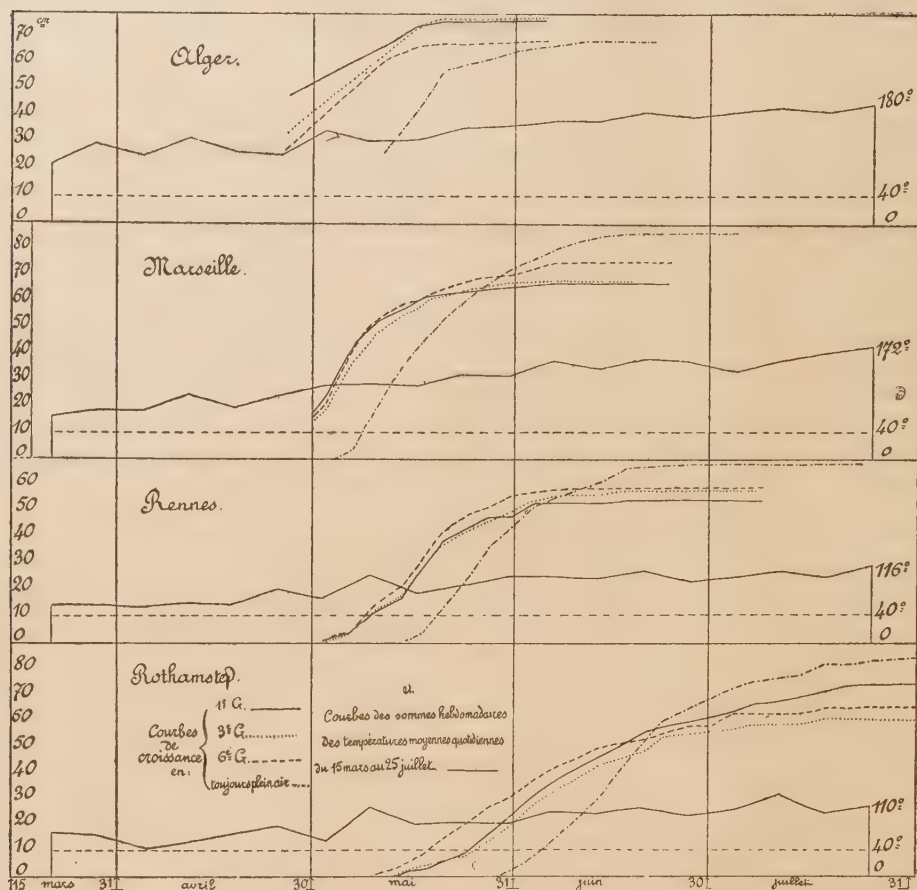 70 cm
60
50
40
30
20
10
0
Alger.
180°
40°
0
80
70
60
50
40
30
20
10
0
Marseille.
172°
40°
0
60
50
40
30
20
10
0
Rennes.
116°
40°
0
80
70
60
50
40
30
20
10
0
Rothamsted.
Courbes
de
croissance
en:
1e G.
3e G.
6e G.
toujours plein air
et
Courbes des sommes hebdomadaires
Des températures moyennes quotidiennes
du 15 mars au 25 juillet
110°
40°
0
15 mars 31 avril 30 mai 31 juin 30 juillet 31